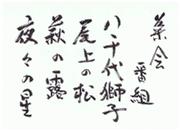 葉会
番組
八千代獅子
尾上の松
萩の露
夜々の星